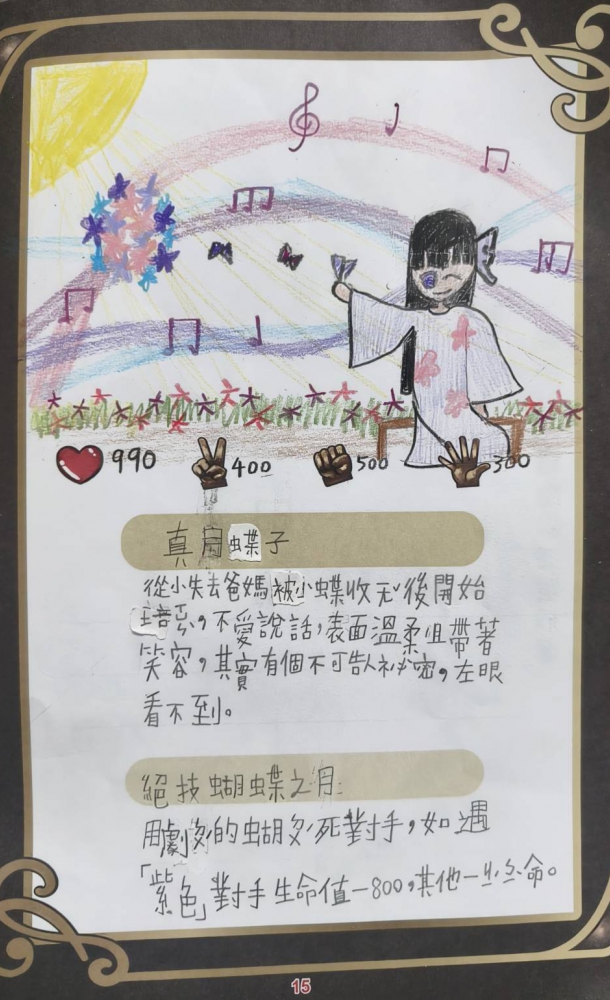 990
400
500
300
真月蝶子
從小失去爸媽被小蝶收 後開始
培 ，不愛說話，表面溫柔但帶著
笑容，其實有個不可告人祕密，左眼
看不到。
絕技蝴蝶之月
用劇 的蝴 死對手，如遇
「紫色」對手生命值-800，其他一 命。
15